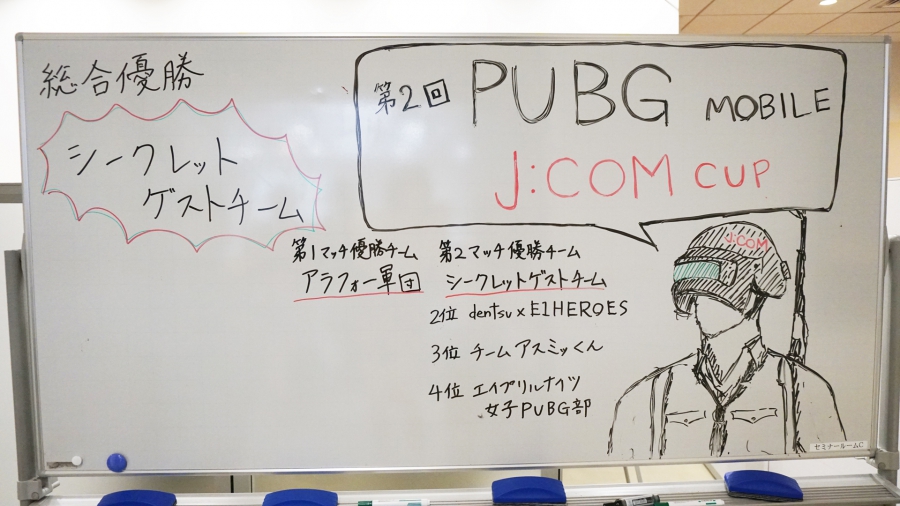 総合優勝
シークレット
ゲストチーム
第2回 PUBG MOBILE
J:COM CUP
第1マッチ優勝チーム
アラフォー軍団
第2マッチ優勝チーム
シークレットゲストチーム
2位 dentsu x E1HEROES
3位 チームアスミッくん
4位 エイプリルナイツ
女子PUBG部
J:COM
セミナールームC